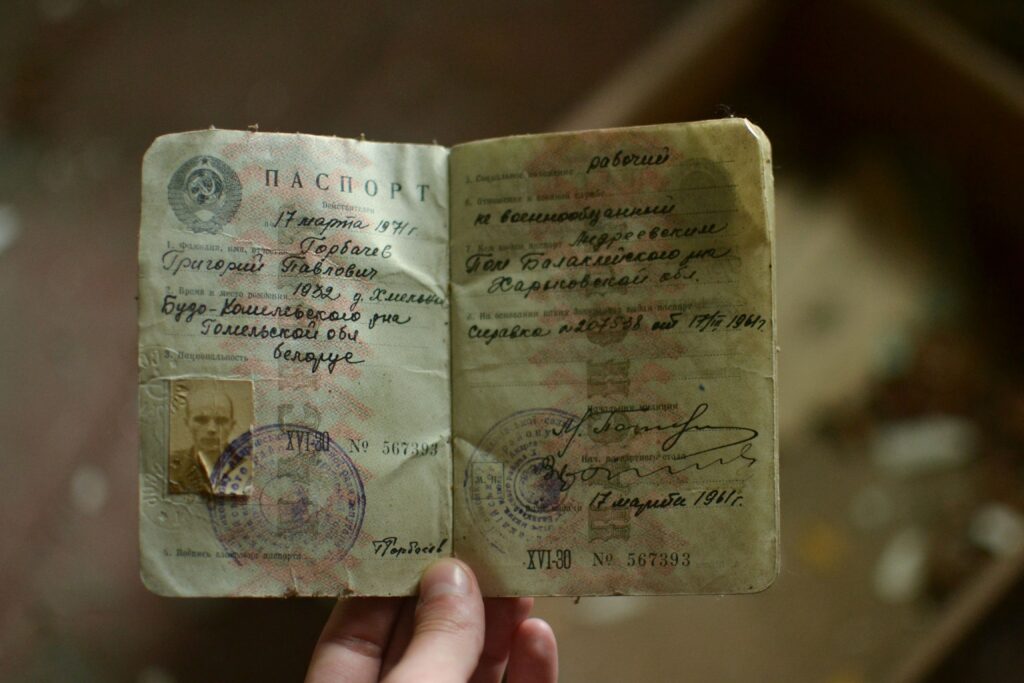 ПАСПОРТ
Действителен
17 марта 1971 г.
1. Фамилия, имя, отчество Горбачев
Григорий Павлович
2. Время и место рождения 1932 д. Хмелье
Будо-Кошелевского р-на
Гомельской обл
3. Национальность белорус
XVI-30 № 567393
4. Подпись владельца паспорта Горбачев
5. Социальное положение рабочий
6. Отношение к военной службе
не военнообязанный
7. Кем выдан паспорт Андреевским
Пом Балаклейского р-на
Харьковской обл.
8. На основании каких документов выдан паспорт
Справка № 207538 от 17/III 1961 г.
Начальник милиции
Нач. паспортного стола
17 марта 1961 г.
XVI-30 № 567393